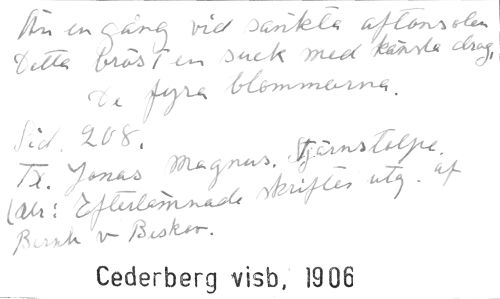 Än en gång vid sänkta aftonsolen
Detta bröst en suck med känsla drog,
De fyra blommorna.
Sid. 208.
Tx. Jonas Magnus. Stjärnstolpe.
(ur: Efterlämnade skrifter utg. af
Bernh v Beskow.
Cederberg visb, 1906